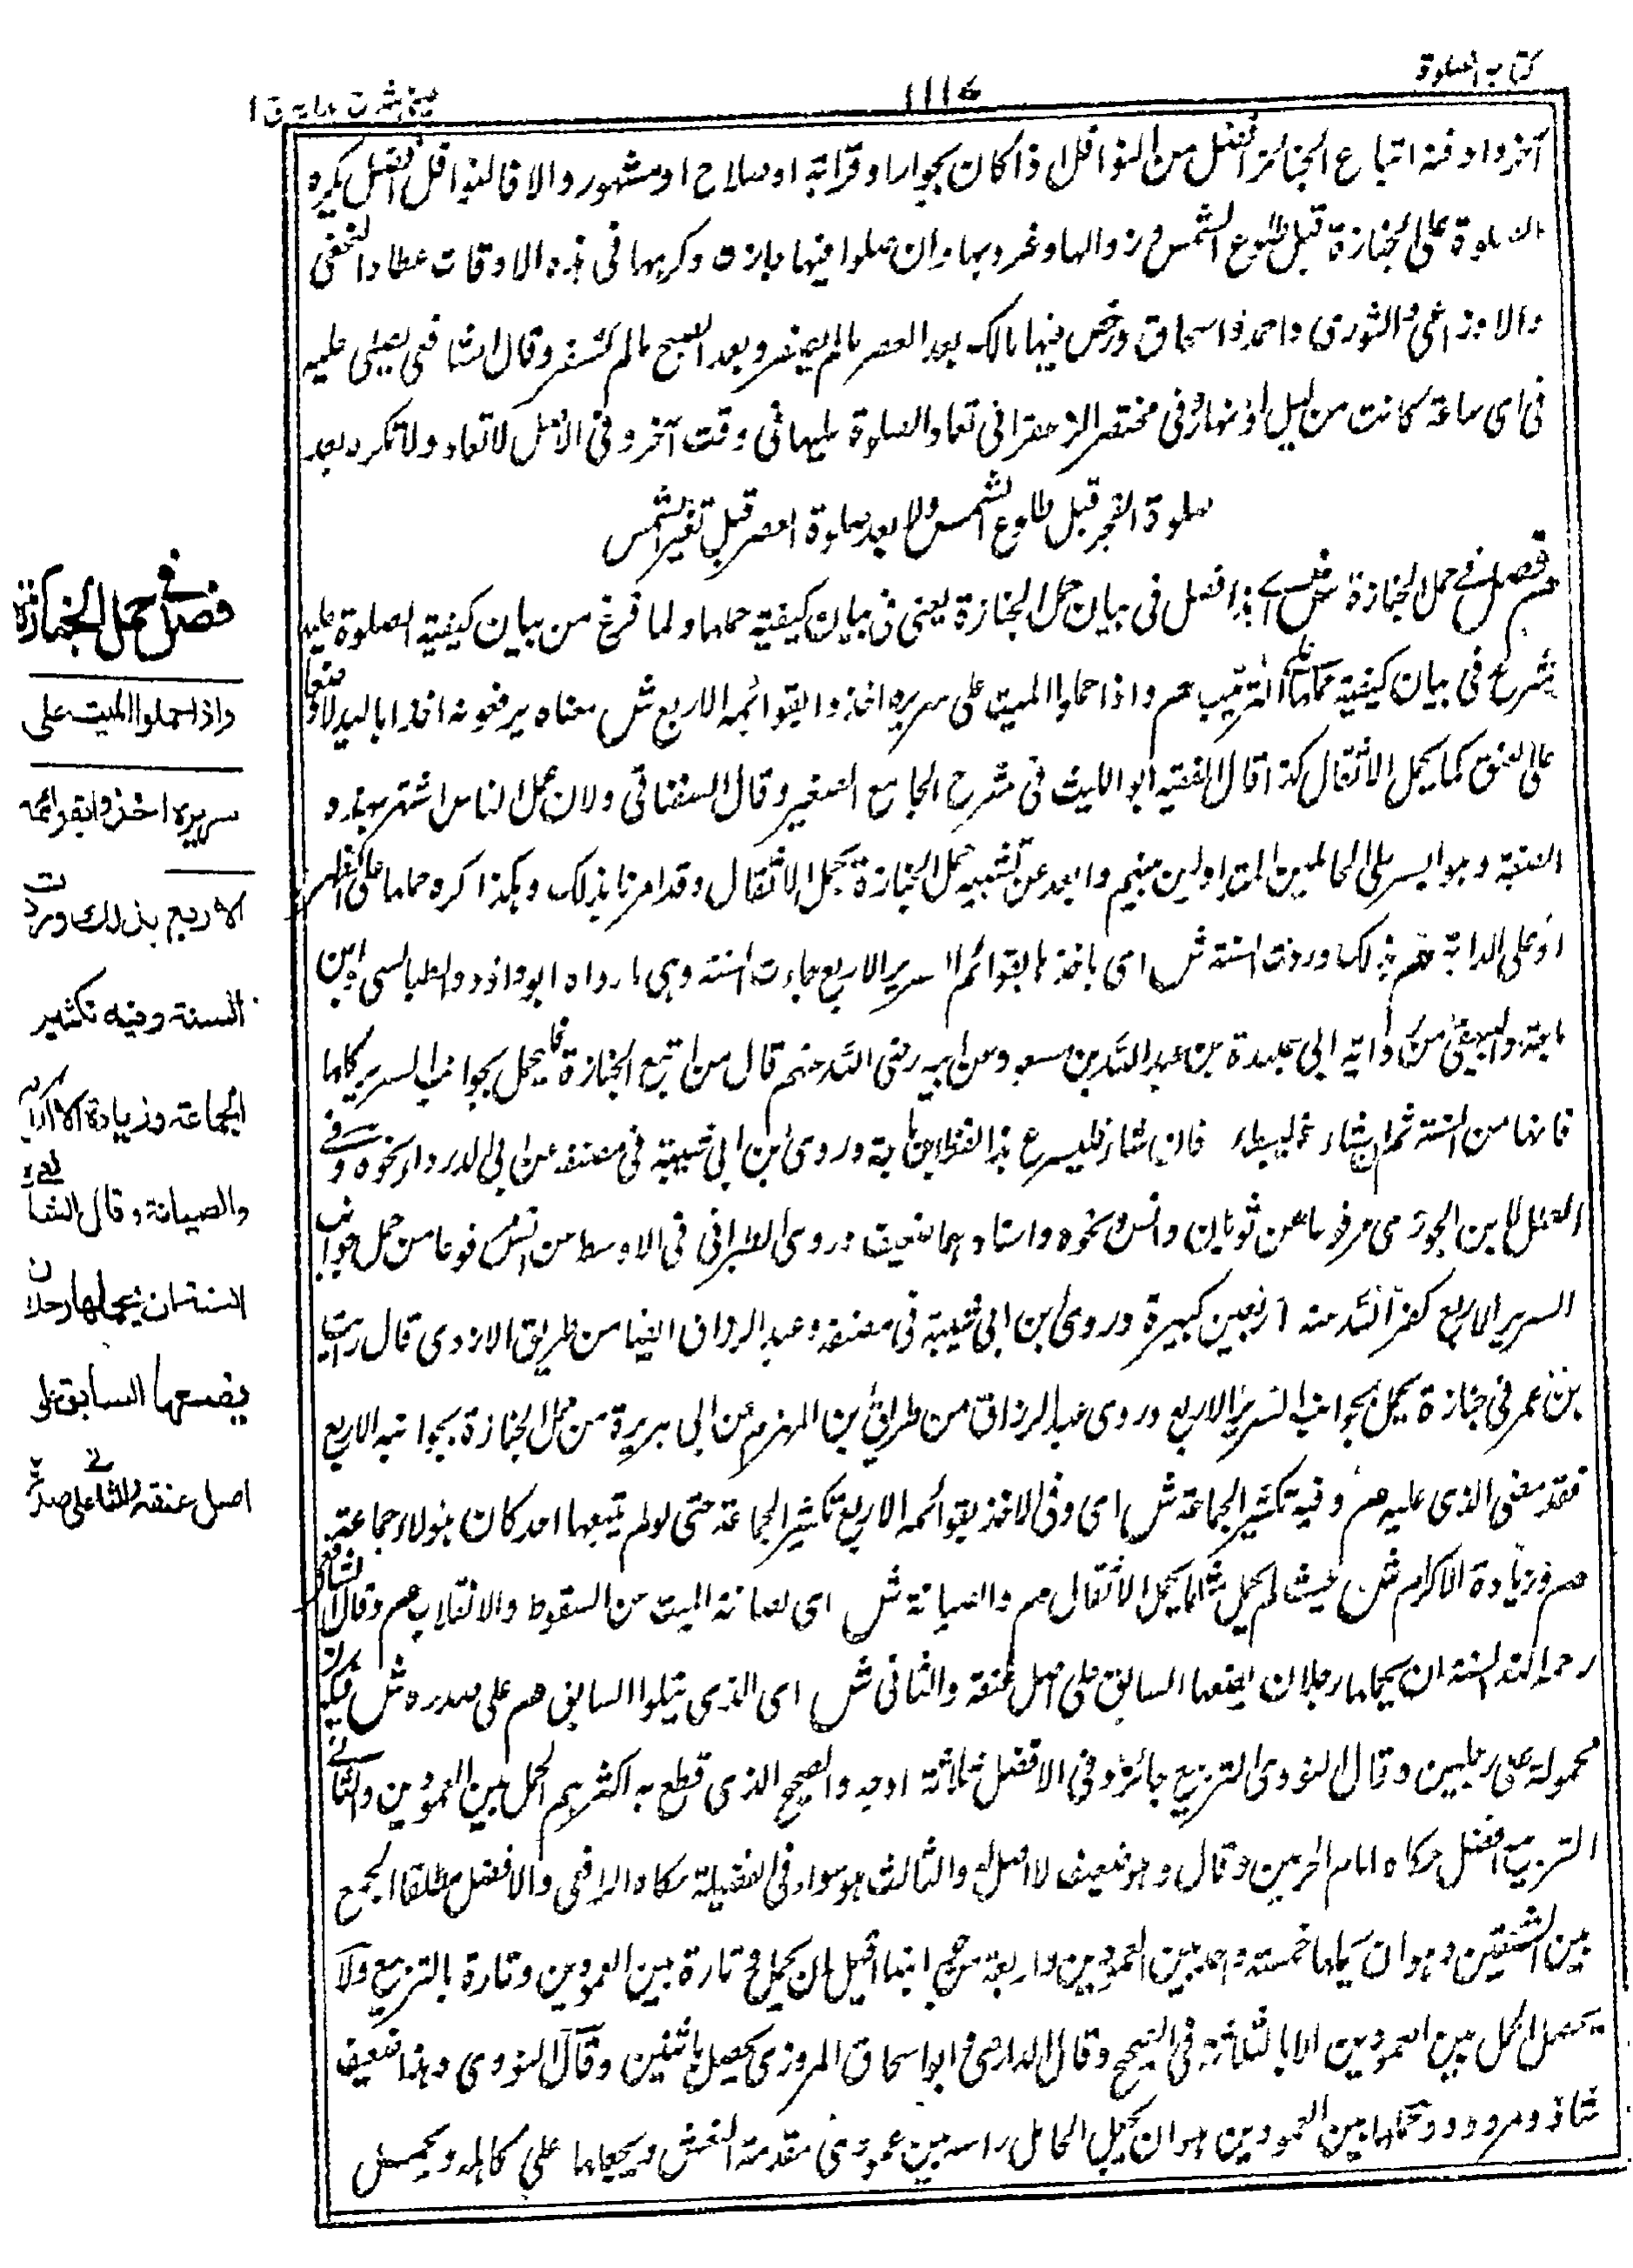 كتاب الصلوة
١١١٤
عيني شرح هداية ج ١
آخر وادفنه اتباع الجنائز افضل من النوافل اذا كان بجوار او قرابة او صلاح او مشهور والا فالنوافل افضل يكره
الصلوة على الجنازة قبل طلوع الشمس وزوالها وغروبها وان صلوا فيها جازت وكرهها في هذه الاوقات عطاء والنخعي
والاوزاعي والثوري واحمد واسحاق ورخص فيها مالك بعد العصر مالم يصفر وبعد الصبح مالم تسفر وقال الشافعي يصلى عليه
في اي ساعة كانت من ليل او نهار وفي مختصر الزعفراني تعاد الصلوة عليها في وقت آخر وفي الاصل لا تعاد ولا تكره بعد
صلوة الفجر قبل طلوع الشمس ولا بعد صلوة العصر قبل تغير الشمس
هم فصل في حمل الجنازة ش اے هذا فصل في بيان حمل الجنازة يعني في بيان كيفية حملها ولما فرغ من بيان كيفية الصلوة عليها
شرع في بيان كيفية حملها على الترتيب هم واذا حملوا الميت على سريره اخذوا بقوائمه الاربع ش معناه يرفعونه اخذا باليد لا وضعا
على العنق كما يحمل الاثقال كذا قال الفقيه ابو الليث في شرح الجامع الصغير وقال السغناقي ولان عمل الناس اشتهر بهذه
الصفة وهو ايسر على الحاملين المتداولين بينهم وابعد عن تشبيه حمل الجنازة بحمل الاثقال وقد امرنا بذلك وهكذا كره حملها على الظهر
او على الدابة هم بذلك وردت السنة ش اى باخذ القوائم السرير الاربع جاءت السنة وهي ما رواه ابو داود الطيالسي وابن
ماجة والبيهقي من رواية ابي عبيدة بن عبد الله بن مسعود عن ابيه رضى الله عنهم قال من اتبع الجنازة فليحمل بجوانب السرير كلها
فانها من السنة ثم ان شاء فليطوع فان شاء فليدع هذا لفظ ابن ماجة وروى ابن ابي شيبة في مصنفه عن ابي الدرداء نحوه وفے
العلل لابن الجوزى مرفوعا عن ثوبان وانس نحوه واسنادهما ضعيف وروى الطبراني في الاوسط من انس مرفوعا من حمل جوانب
السرير الاربع كفر الله عنه اربعين كبيرة وروى ابن ابي شيبة في مصنفه وعبد الرزاق ايضا من طريق الازدى قال رايت
بن عمر في جنازة يحمل بجوانب السرير الاربع وروى عبد الرزاق من طريق بن المهزم عن ابي هريرة من حمل الجنازة بجوانبه الاربع
فقد قضى الذى عليه هم وفيه تكثير الجماعة ش اى وفي الاخذ بقوائمه الاربع تكثير الجماعة حتى لو لم يتبعها احد كان هؤلاء جماعة
هم وزيادة الاكرام ش حيث لم يحمل مثل ما يحمل الاثقال هم والصيانة ش اى لصيانة الميت عن السقوط والانقلاب هم وقال الشافعى
رحمه الله السنة ان يحملها رجلان يضعها السابق على اصل عنقه والثانى ش اى الذى يتلوا السابق هم على صدره ش فيكون
محمولة على رجلين وقال النووى التربيع جائز وفي الافضل ثلاثة اوجه والصحيح الذى قطع به اكثرهم الحمل بين العمودين والثانے
التربيع افضل حكاه امام الحرمين وقال وهو ضعيف لا اصل له والثالث هو سواء في الفضيلة حكاه الرافعى والافضل مطلقا الجمع
بين الشقين وهو ان يحملها خمسة واحد بين العمودين واربعة من جوانبها قيل ان يحمل تارة بين العمودين وتارة بالتربيع ولا
يحصل الحمل بين العمودين الا بالثلاثة في الصحيح وقال الدارمى وابو اسحاق المروزى يحصل باثنين وقال النووى وهذا ضعيف
شاذ ومردود وحملها بين العمودين هو ان يجعل الحامل راسه بين عمودى مقدمة النعش ويجعلها على كاهله ويحمل
فصل في حمل الجنازة
واذا حملوا الميت على
سريره اخذوا بقوائمه
الاربع بذلك وردت
السنة وفيه تكثير
الجماعة وزيادة الاكرام
والصيانة وقال الشافعے
السنة ان يحملها رجلان
يضعها السابق على
اصل عنقه والثانے على صدره